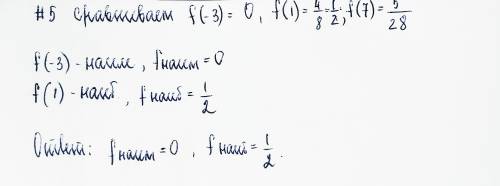 #5 Сравниваем f(-3) = 0, f(1) = 4/8 = 1/2; f(7) = 5/28
f(-3) - наим, fнаим = 0
f(1) - наиб, fнаиб = 1/2
Ответ: fнаим = 0, fнаиб = 1/2.